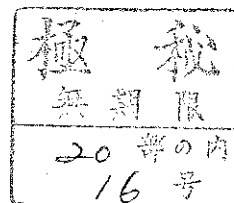 極秘
無期限
20部の内
16号